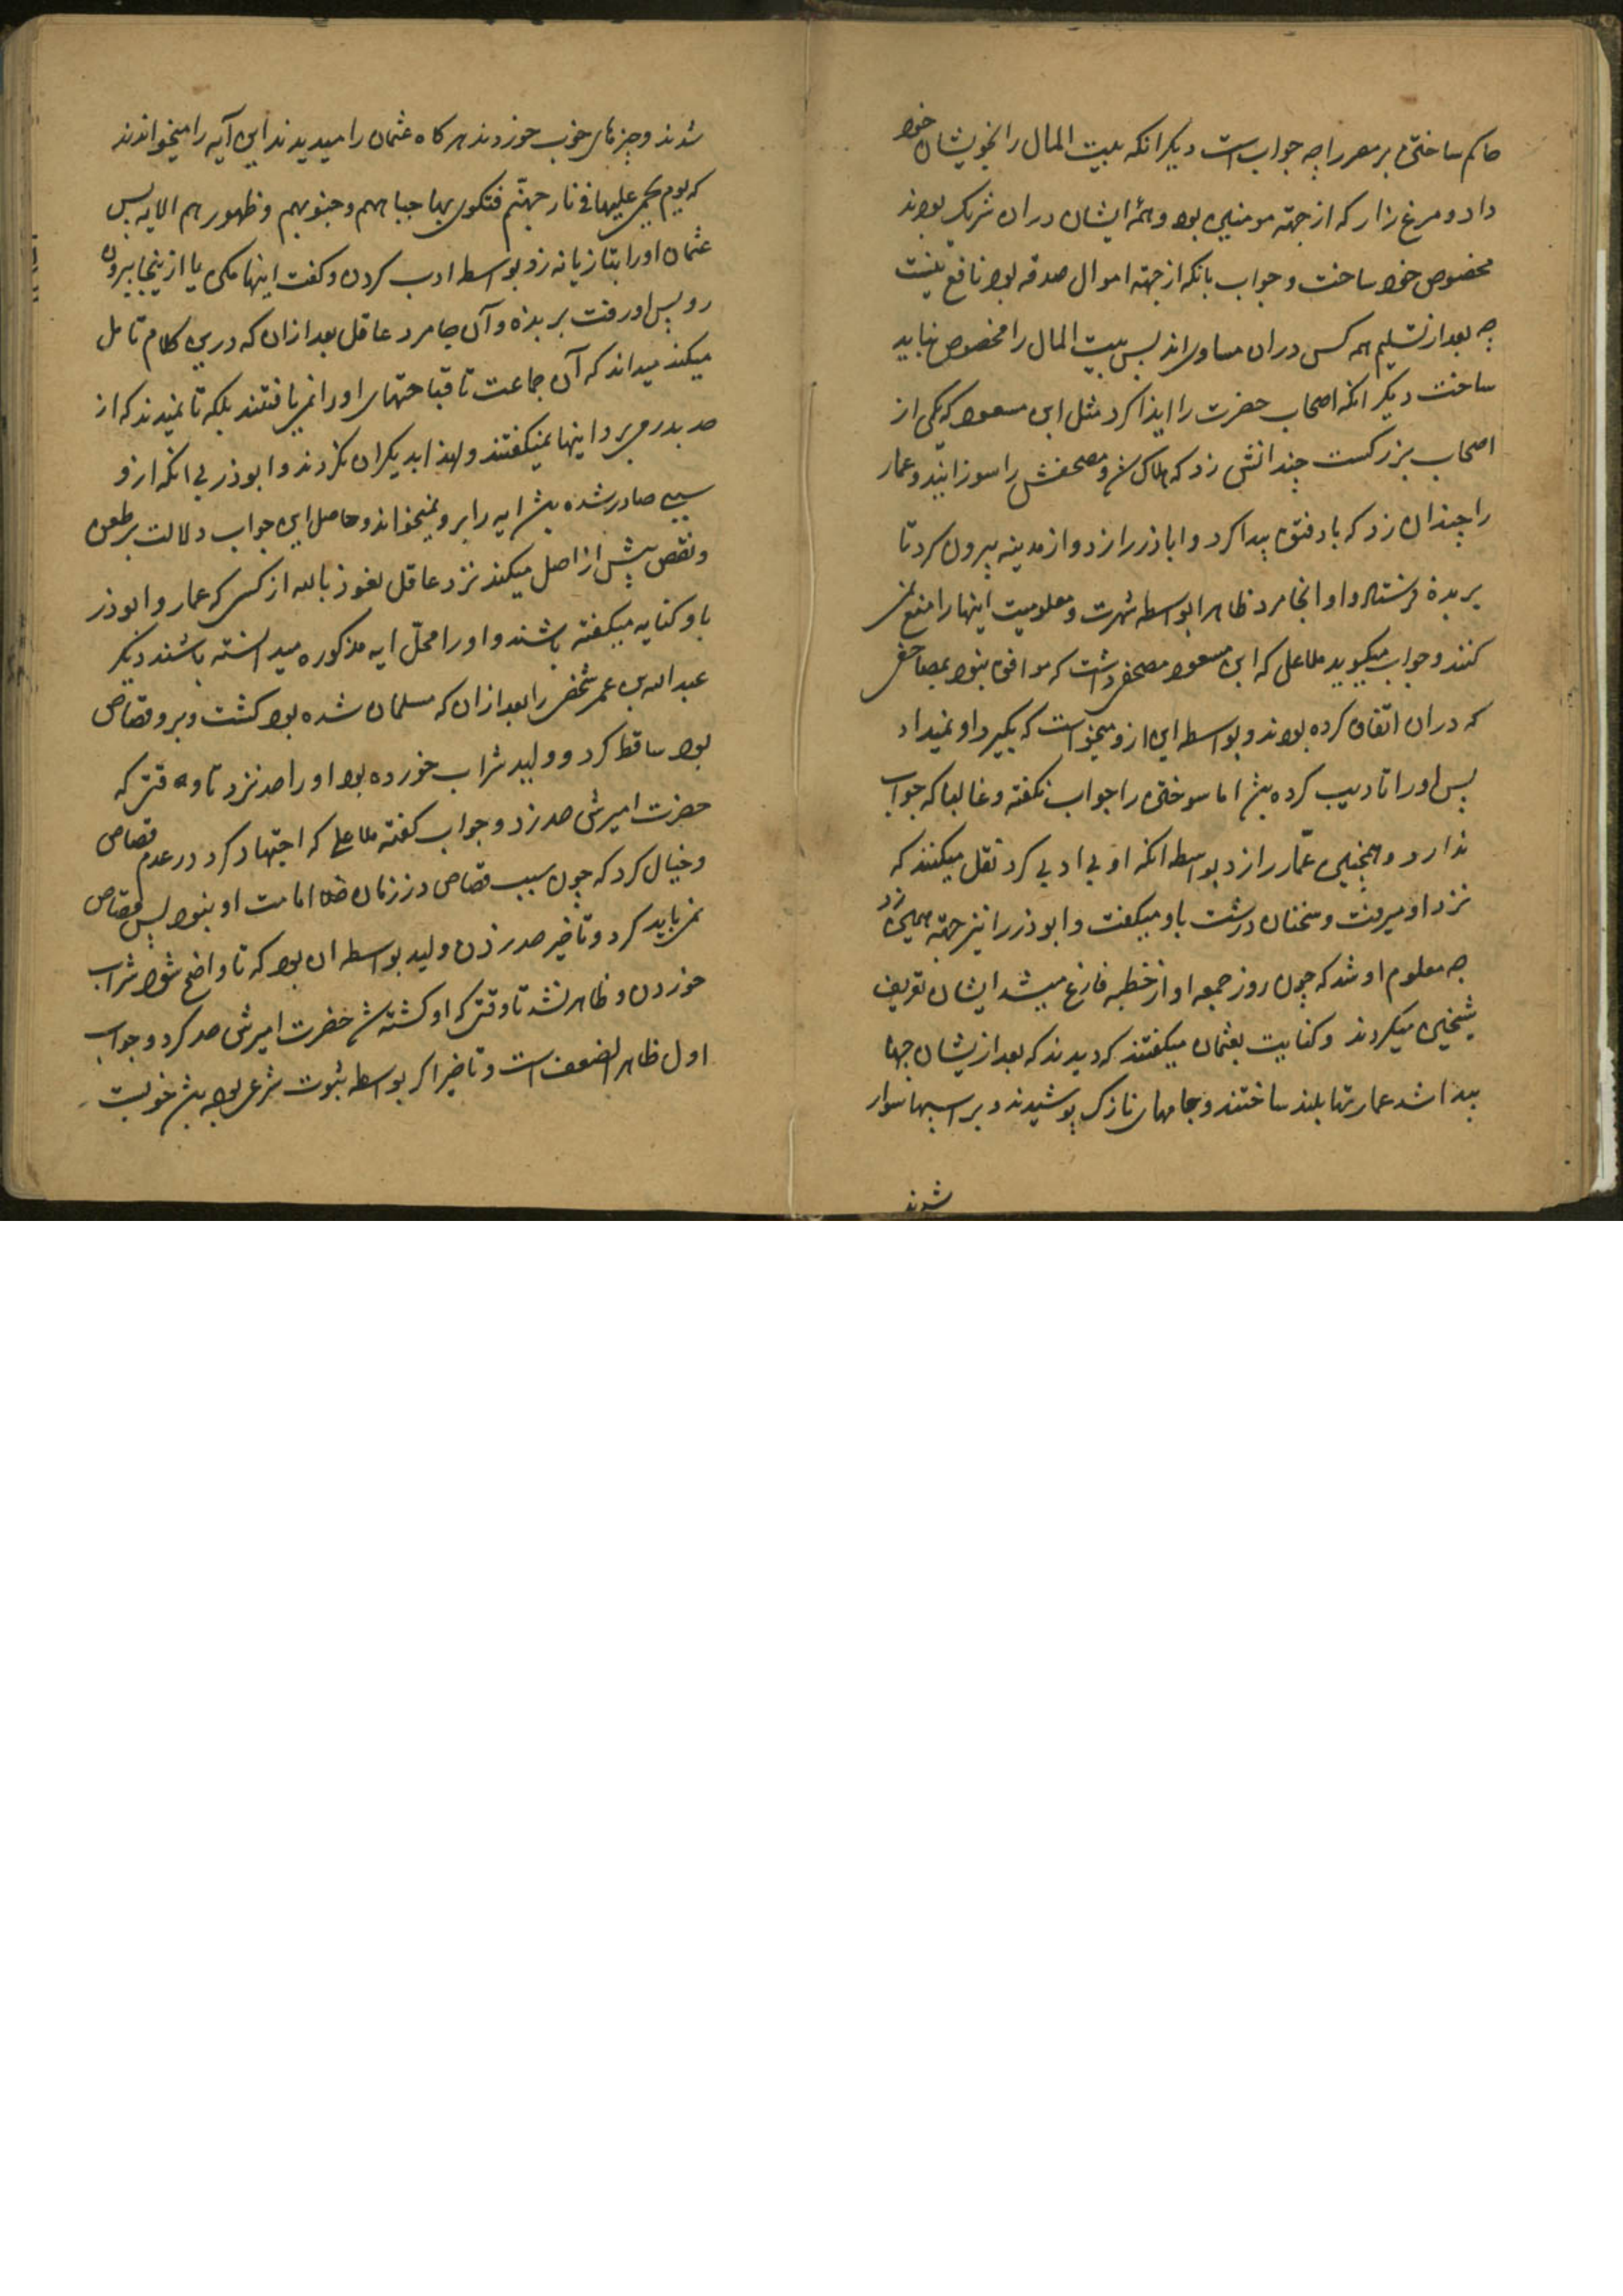 حاکم ساختن بر مصر را چه جوابست دیکر انکه بیت المال را بخویشان خود
داد و مرغزار که از جهته مومنین بود و همه ایشان دران شریک بودند
مخصوص خود ساخت و جواب بانکه از جهته اموال صدقه بود نافع نیست
چه بعد از تسلیم همه کس دران مساوی اند پس بیت المال را مخصوص نباید
ساخت دیکر انکه اصحاب حضرت را ایذا کرد مثل ابن مسعود که یکی از
اصحاب بزرکست چندانش زد که هلاک شد و مصحفش را سوزانید و عمار
را چندان زد که باد فتق پیدا کرد و اباذر را زد و از مدینه بیرون کرد تا
بربذه فرستاد و او انجا مرد ظاهرا بواسطه شهرت و معلومیت اینها را منع نمی
کنند و جواب میکوید ملا علی که ابن مسعود مصحفی داشت که موافق نبود بمصاحفی
که دران اتفاق کرده بودند و بواسطه این ازو میخواست که بکیرد او نمیداد
پس او را تادیب کرده باشد اما سوختن را جواب نکفته و غالبا که جواب
ندارد و همچنین عمّار را زد بواسطه انکه او بی ادبی کرد نقل میکنند که
نزد او میرفت و سخنان درشت باو میکفت و ابوذر را نیز جهته همین زد
چه معلوم او شد که چون روز جمعه او از خطبه فارغ میشد ایشان تعریف
شیخین میکردند و کنایت بعثمان میکفتند که دیدند که بعد ازیشان جها
پیدا شد عمارتها بلند ساختند و جامهای نازک پوشیدند و بر اسبها سوار
شدند
شدند و چیزهای خوب خوردند هر کاه عثمان را میدیدند این آیه را میخواندند
که یوم یحمی علیها فی نار جهنّم فتکوی بها جباههم و جنوبهم و ظهورهم الایه پس
عثمان او را بتازیانه زد بواسطه ادب کردن و کفت اینها مکن یا ازینجا بیرون
رو پس او رفت بربذه و آن جا مرد عاقل بعد ازان که درین کلام تامل
میکند میداند که آن جماعت تا قباحتهای او را نمی یافتند بلکه تا نمیدیدند که از
حد بدر میبرد اینها نمیکفتند و لهذا بدیکران نکردند و ابوذر بی انکه ازو
سببی صادر شده باشد ایه را برو نمیخواند و حاصل این جواب دلالت بر طعن
و نقص بیش از اصل میکند نزد عاقل نعوذ بالله از کسی که عمار و ابوذر
باو کنایه میکفته باشند و او را محلّ ایه مذکوره میدانسته باشند دیکر
عبد الله بن عمر شخصی را بعد ازان که مسلمان شده بود کشت و برو قصاص
بود ساقط کرد و ولید شراب خورده بود او را حد نزد تا وقتی که
حضرت امیرش حد زد و جواب کفته ملا علی که اجتهاد کرد در عدم قصاص
و خیال کرد که چون سبب قصاص در زمان امامت او نبود پس قصاص
نمی باید کرد و تاخیر حد زدن ولید بواسطه ان بود که تا واضح شود شراب
خوردن و ظاهر نشد تا وقتی که او کشته شد حضرت امیرش حد کرد و جواب
اول ظاهر الضعف است و تاخیر اکر بواسطه ثبوت شرعی بوده باشد خوبست